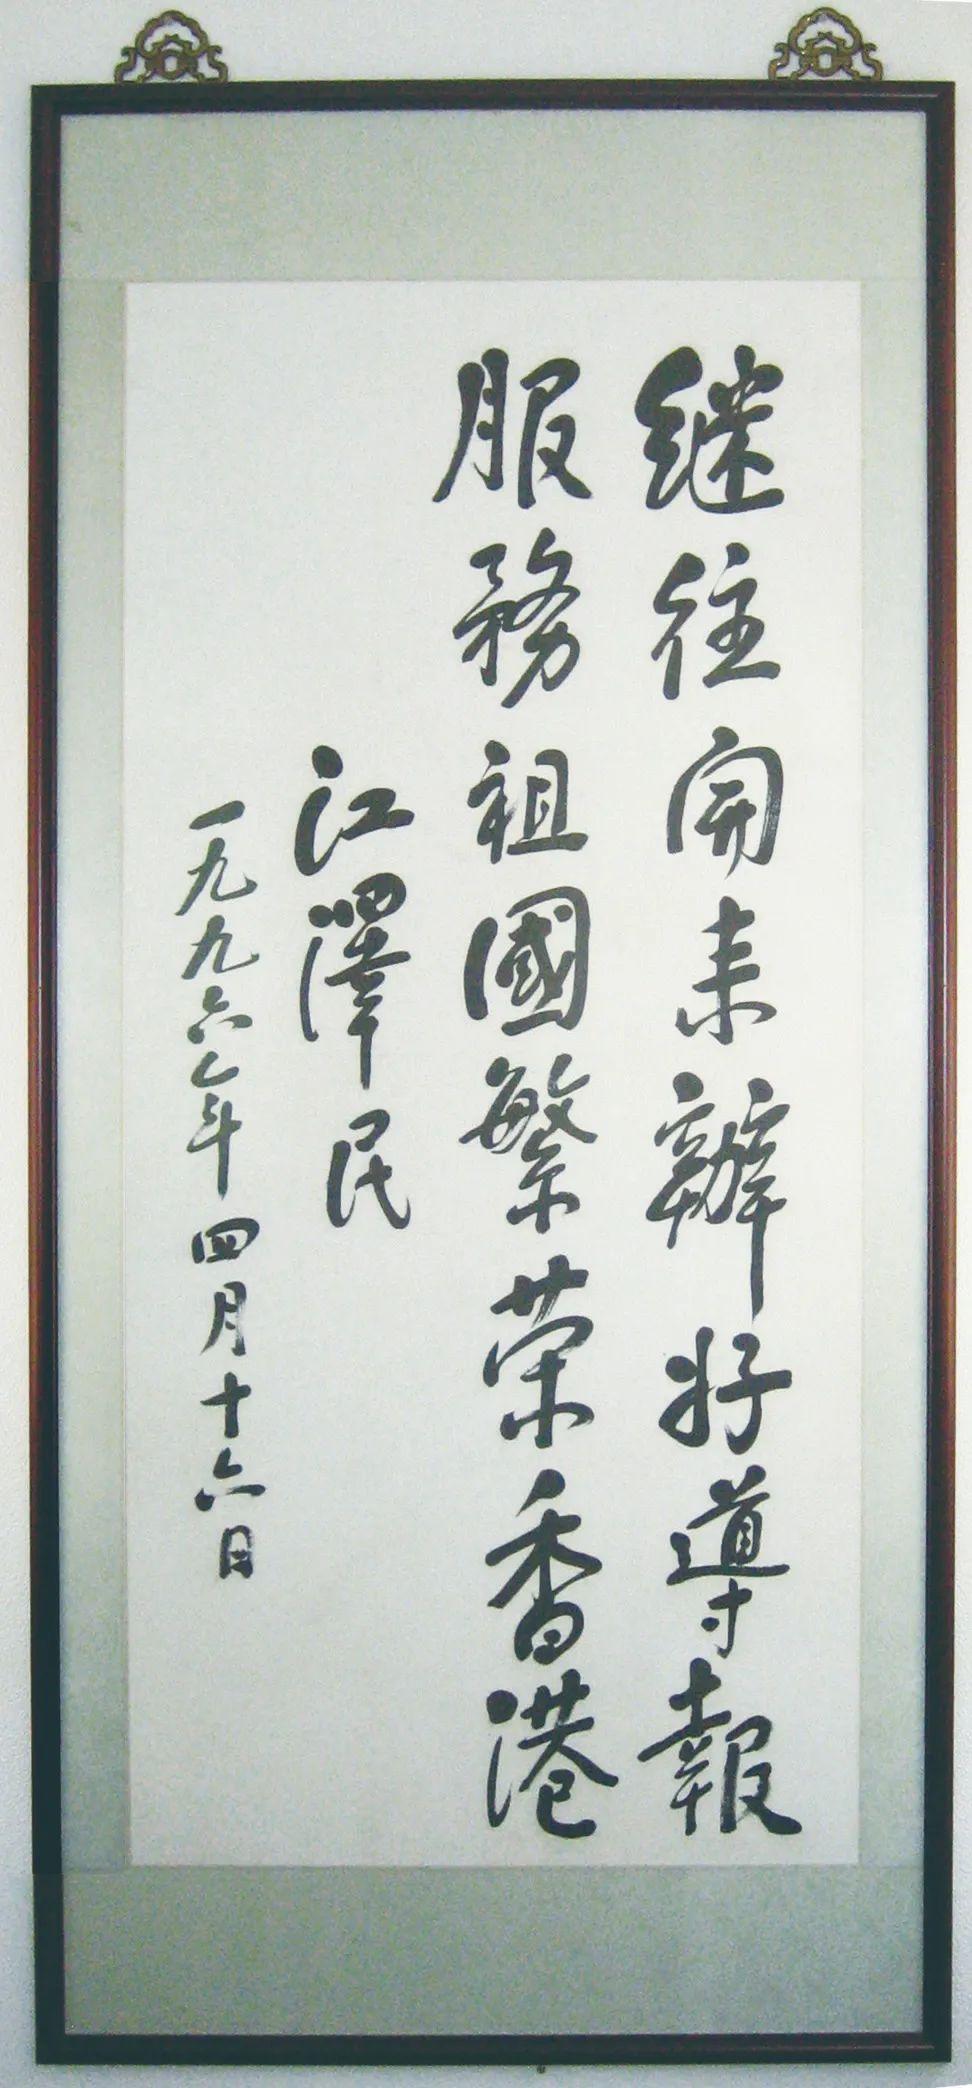 继往開来辦好導報
服務祖國繁荣香港
江澤民
一九九六年四月十六日